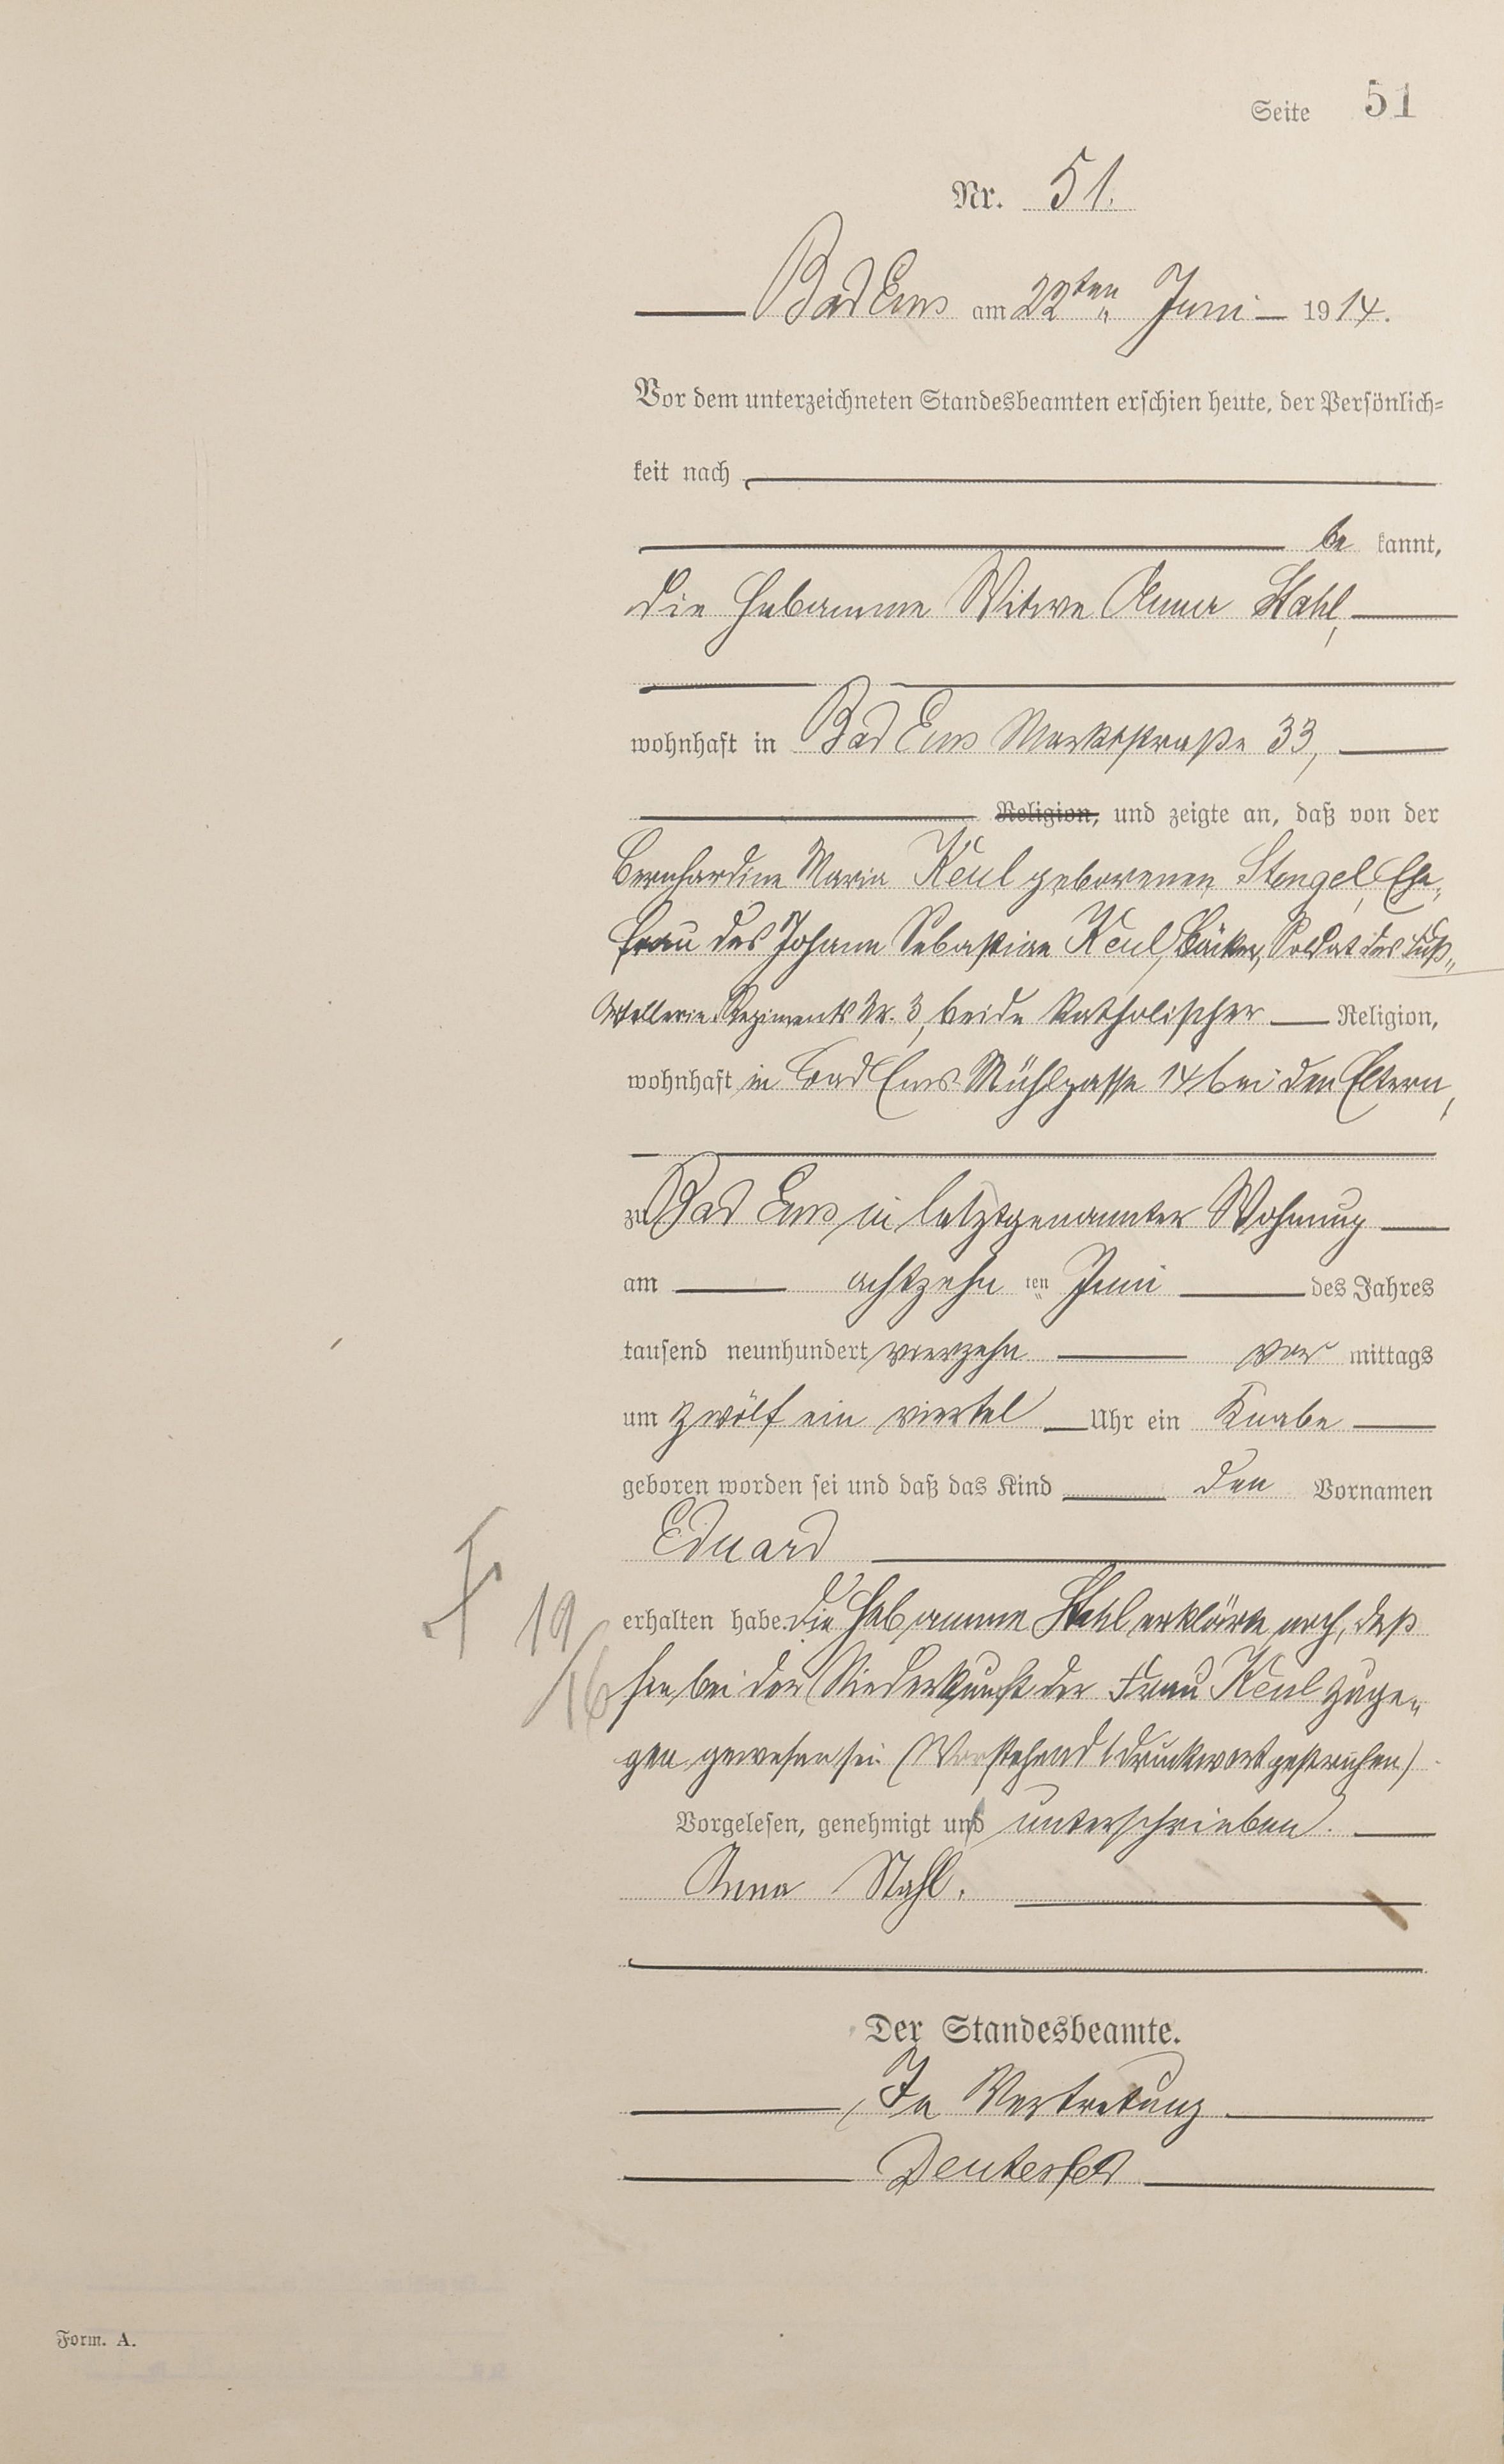 Seite 51
Nr. 51.
Bad Ems am 22ten Juni 1914.
Vor dem unterzeichneten Standesbeamten erschien heute, der Persönlich=
keit nach
be kannt,
die Hebamme Witwe Anna Stahl,
wohnhaft in Bad Ems Marktstraße 33,
Religion, und zeigte an, daß von der
Bernhardine Maria Keul geborenen Stengel, Ehe,
frau des Johann Sebastian Keul, Bäcker, Soldat des Fuß„
Artellerie. Regiments Nr. 3, beide katholischer Religion,
wohnhaft in Bad Ems Mühlgasse 14 bei den Eltern,
zu Bad Ems in letztgenannter Wohnung
am achtzehn ten Juni des Jahres
tausend neunhundert vierzehn vor mittags
um zwölf ein viertel Uhr ein Knabe
geboren worden sei und daß das Kind den Vornamen
Eduard
erhalten habe. Die Hebamme Stahl erklärte noch, daß
19
16
sie bei der Niederkunft der Frau Keul zuge„
gen gewesen sei (Vorstehend 1 Druckwort gestrichen)
Vorgelesen, genehmigt und unterschrieben.
Anna Stahl.
Der Standesbeamte.
In Vertretung
Form. A.